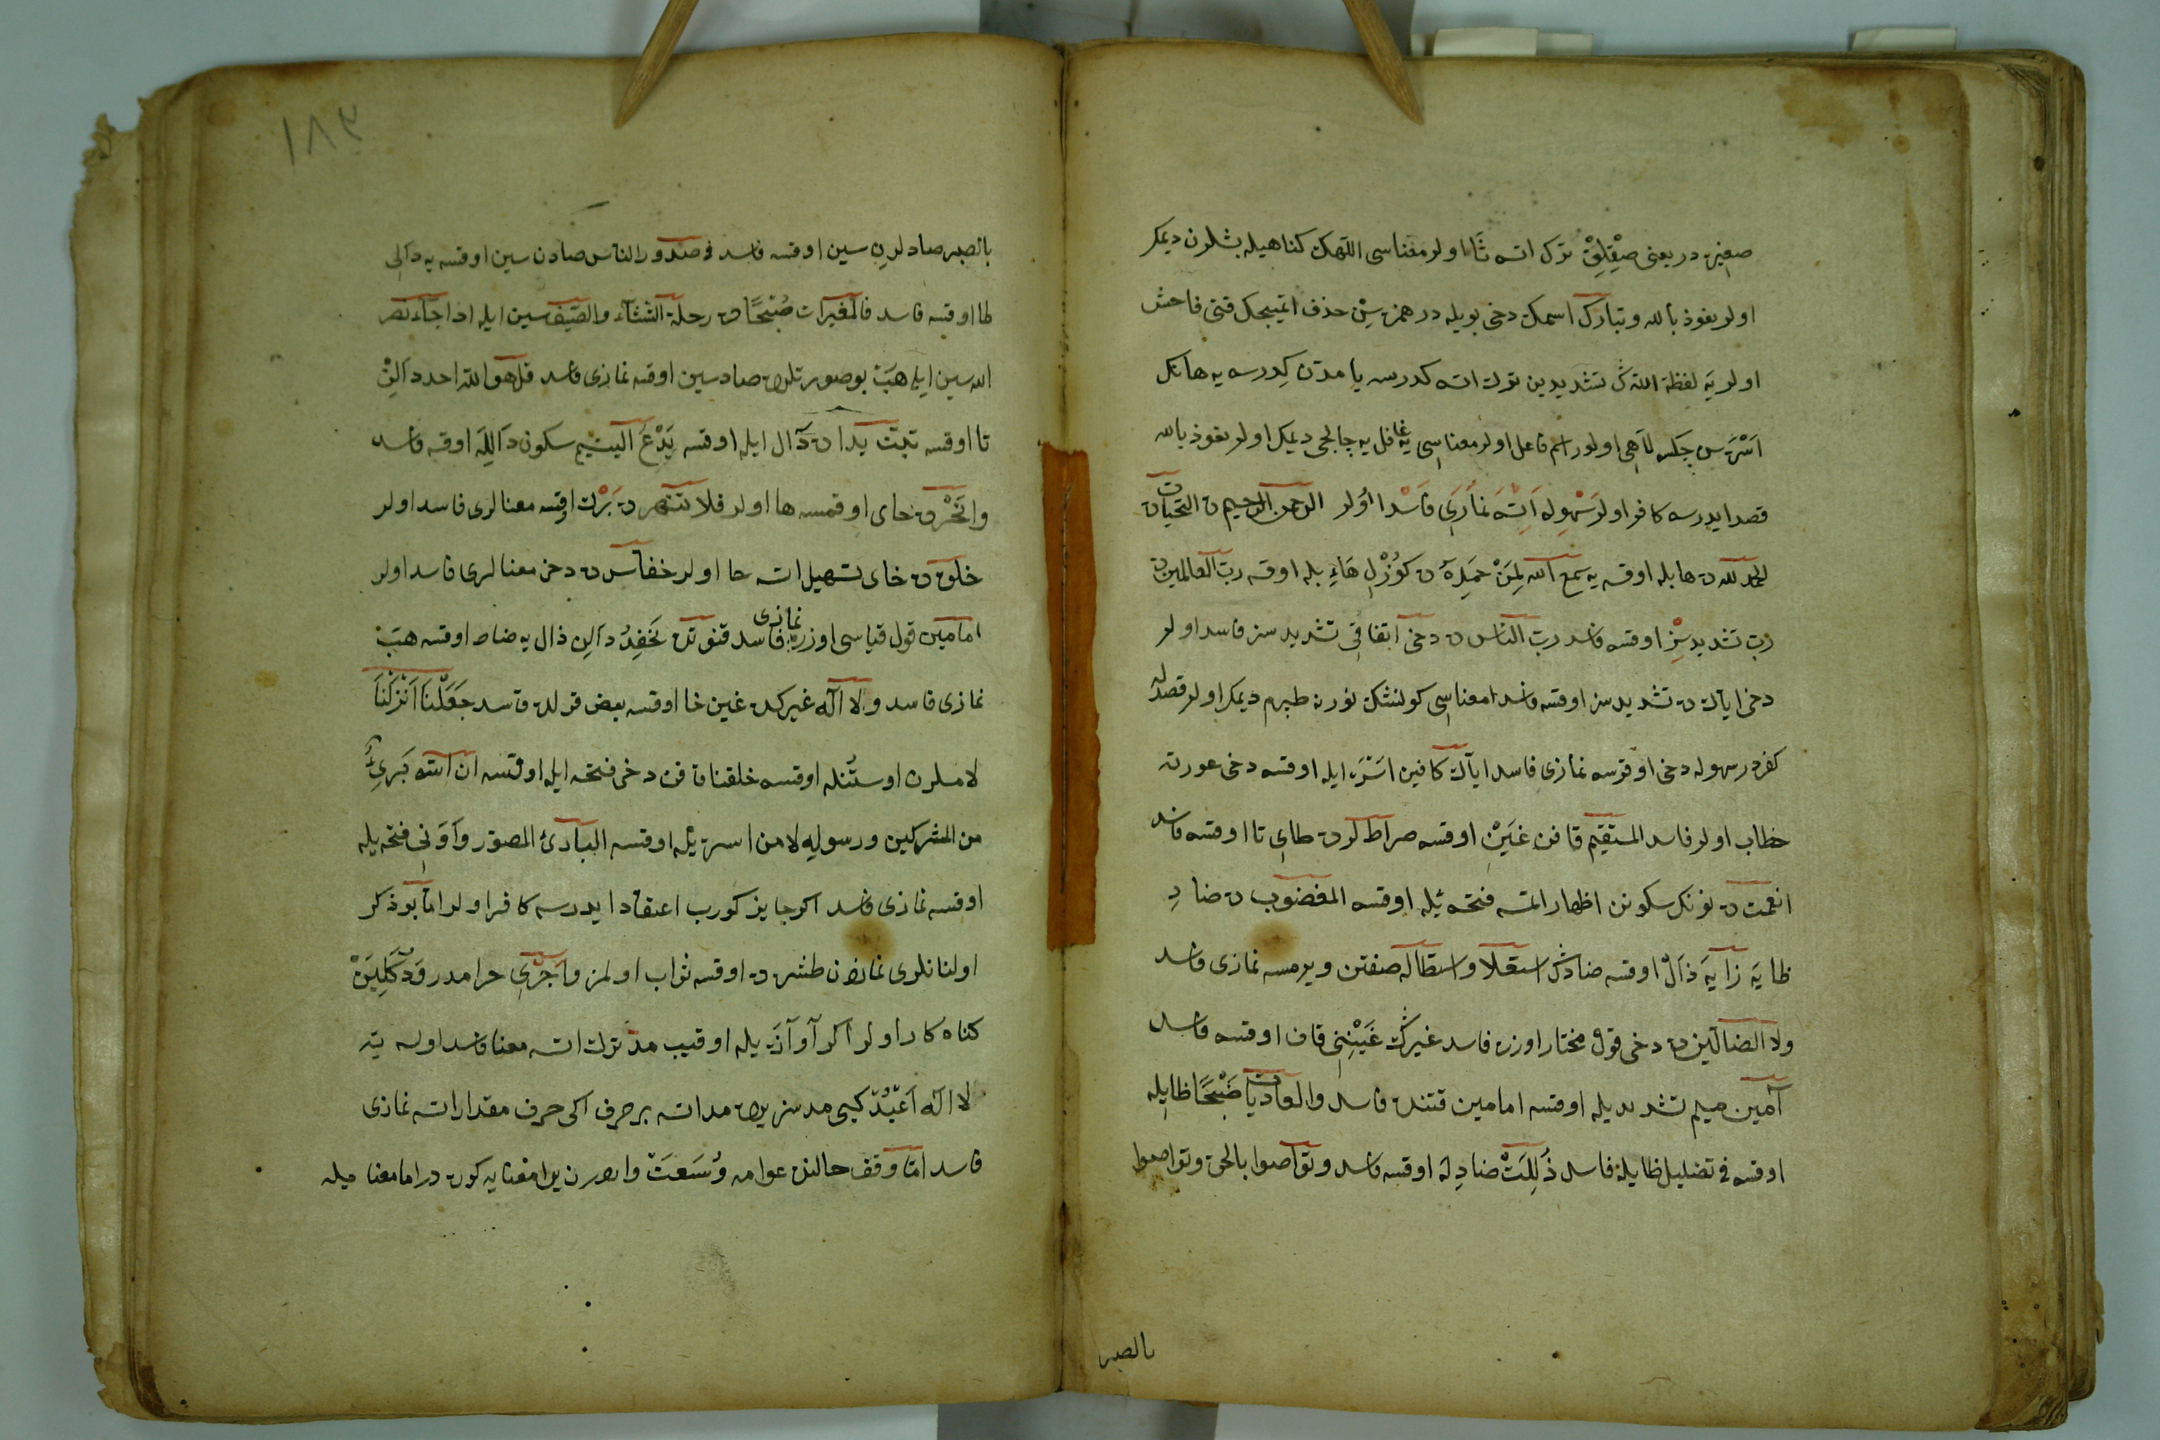 صغیر در یعنی صیقلق ترک اتسه ثنا اولر معناسی اللهک کناهیله بشلرن دیمکر
اولر نعوذ بالله و تبارک اسمک دخی بویله در همزه سن حذف اتمیجک قتی فاحش
اولر یه لفظة اللهک تشدیدین ترک اتسه کدرسه یا مدن کدرسه یه هانکل
اسره سن چکسه لاهی اولور اسم فاعل اولر معناسی یه غافل یه چالجی دیمک اولر نعوذ بالله
قصد ایدرسه کافر اولر سهوله اتسه نمازی فاسد اولر الرحمن الرحیم ده التحیات ده
الحمد لله ده ها یله اوقسه یه سمع الله لمن حمده ده کوزل هاء یله اوقسه رب العالمین ده
رب تشدیدسز اوقسه فاسد رب الناس ده دخی اتفاقی تشدیدسز فاسد اولر
دخی ایاک ده تشدیدسز اوقسه فاسد معناسی کونشک نورنه طپرم دیمکر اولر قصدله
کفردر سهوله دخی اوقرسه نمازی فاسد ایاک کافین اسره ایله اوقسه دخی عورته
خطاب اولر فاسد المستقیم قافن غین اوقسه صراط لرده طای تا اوقسه فاسد
انعمت ده نونک سکونن اظهار اتمسه فتحه یله اوقسه المغضوب ده ضادی
ظا یه زا یه ذال اوقسه ضادک استعلا و استطاله صفتن ویرمسه نمازی فاسد
ولا الضالین ده دخی قول مختار اوزره فاسد غیرک غینی قاف اوقسه فاسد
آمین میم تشدیدیله اوقسه امامین قتنده فاسد والعادیات ضبحا ظایله
اوقسه فی تضلیل ظایله فاسد ذلک ضادله اوقسه فاسد و تواصوا بالحق و تواصوا
بالصبر
۱۸۲
بالصبر صادلرین سین اوقسه فاسد فی صدور الناس صادن سین اوقسه یه دالی
طا اوقسه فاسد فالمغیرات صبحا ده رحلة الشتاء والصیف سین ایله اذا جاء نصر
الله سین ایله هپ بو صورتلرده صاد سین اوقسه نمازی فاسد قل هو الله احد دالن
تا اوقسه تبت یدا ده دال ایله اوقسه یدع الیتیم سکون دالله اوقسه فاسد
وانحر ده حای اوقمسه ها اولر فلا تنهر ده برک اوقسه معنالری فاسد اولر
خلق ده خای تسهیل اتسه حا اولر خناس ده دخی معنالری فاسد اولر
امامین قول قیاسی اوزره نمازی فاسد قنوتده نحفد دالن ذال یه ضاد اوقسه هپ
نمازی فاسد ولا اله غیرک ده غین خا اوقسه بعض قولده فاسد جعلنا انزلنا
لاملرن اوستنله اوقسه خلقنا قافن دخی فتحه ایله اوقسه ان الله بریء
من المشرکین ورسوله لامن اسره یله اوقسه البارئ المصور واونی فتحه یله
اوقسه نمازی فاسد اکر جایز کورب اعتقاد ایدرسه کافر اولر اما بو ذکر
اولنانلری نمازدن طشره ده اوقسه ثواب اولمز واجری حرامدر ودکلین
کناه کار اولر اکر آواز یله اوقیب مد ترک اتسه معنا فاسد اولسه یه
لا اله اعبد کبی مدسز یرده مد اتسه بر حرف اکی حرف مقدار اتسه نمازی
فاسد اما وقف حالنده عوامه وسعت وار معنایه کوره در اما معنا